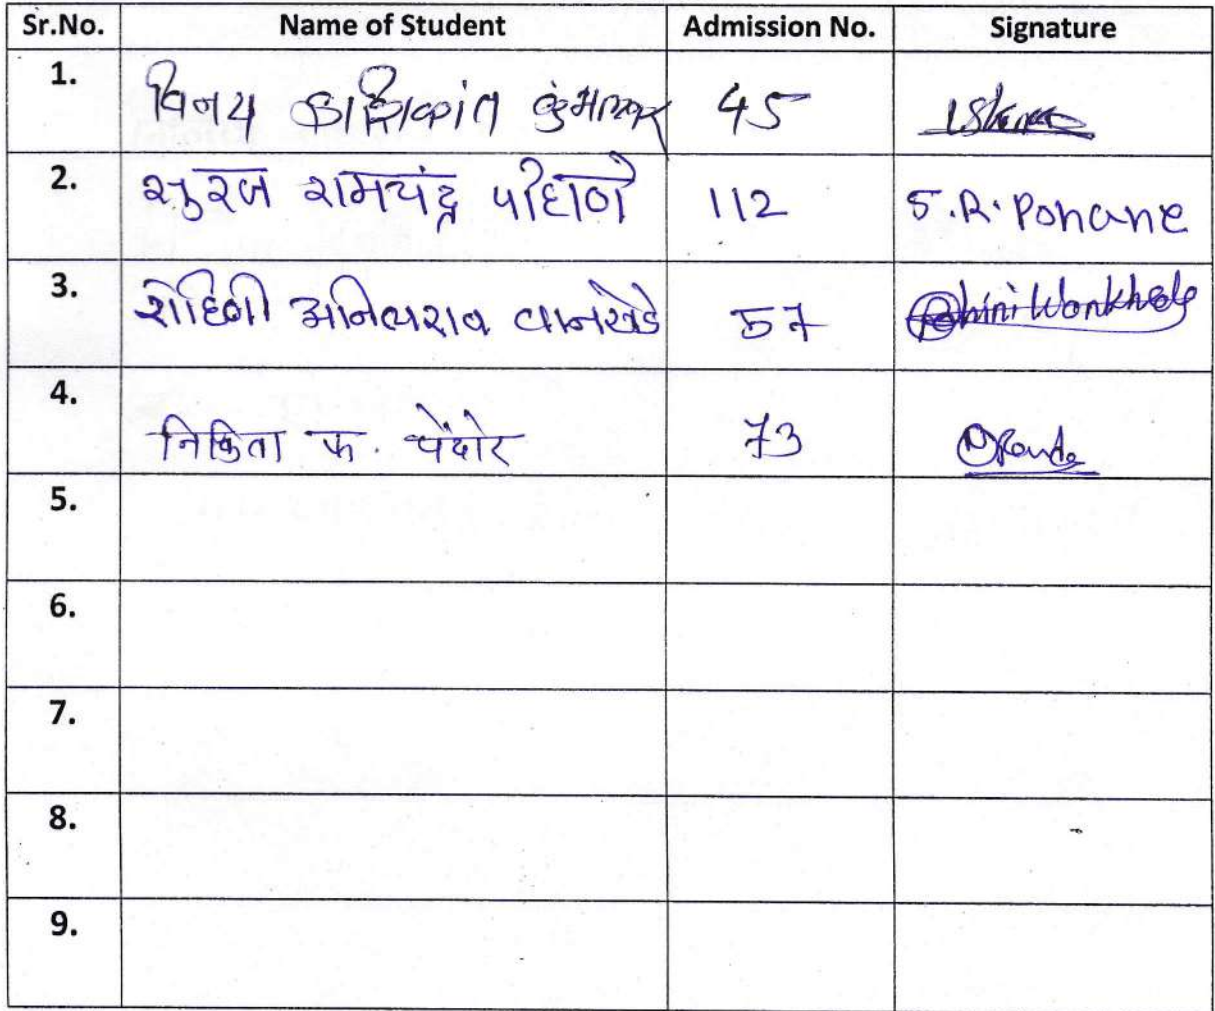 Sr.No. Name of Student Admission No. Signature
1. विनय शशिकांत कुंभलकर 45
2. सुरज रामचंद्र पोहाणे 112 S.R. Pohane
3. रोहिणी अनिलराव वानखेडे 57 Rohini Wankhede
4. निकिता फ. पेंदोर 73
5.
6.
7.
8.
9.